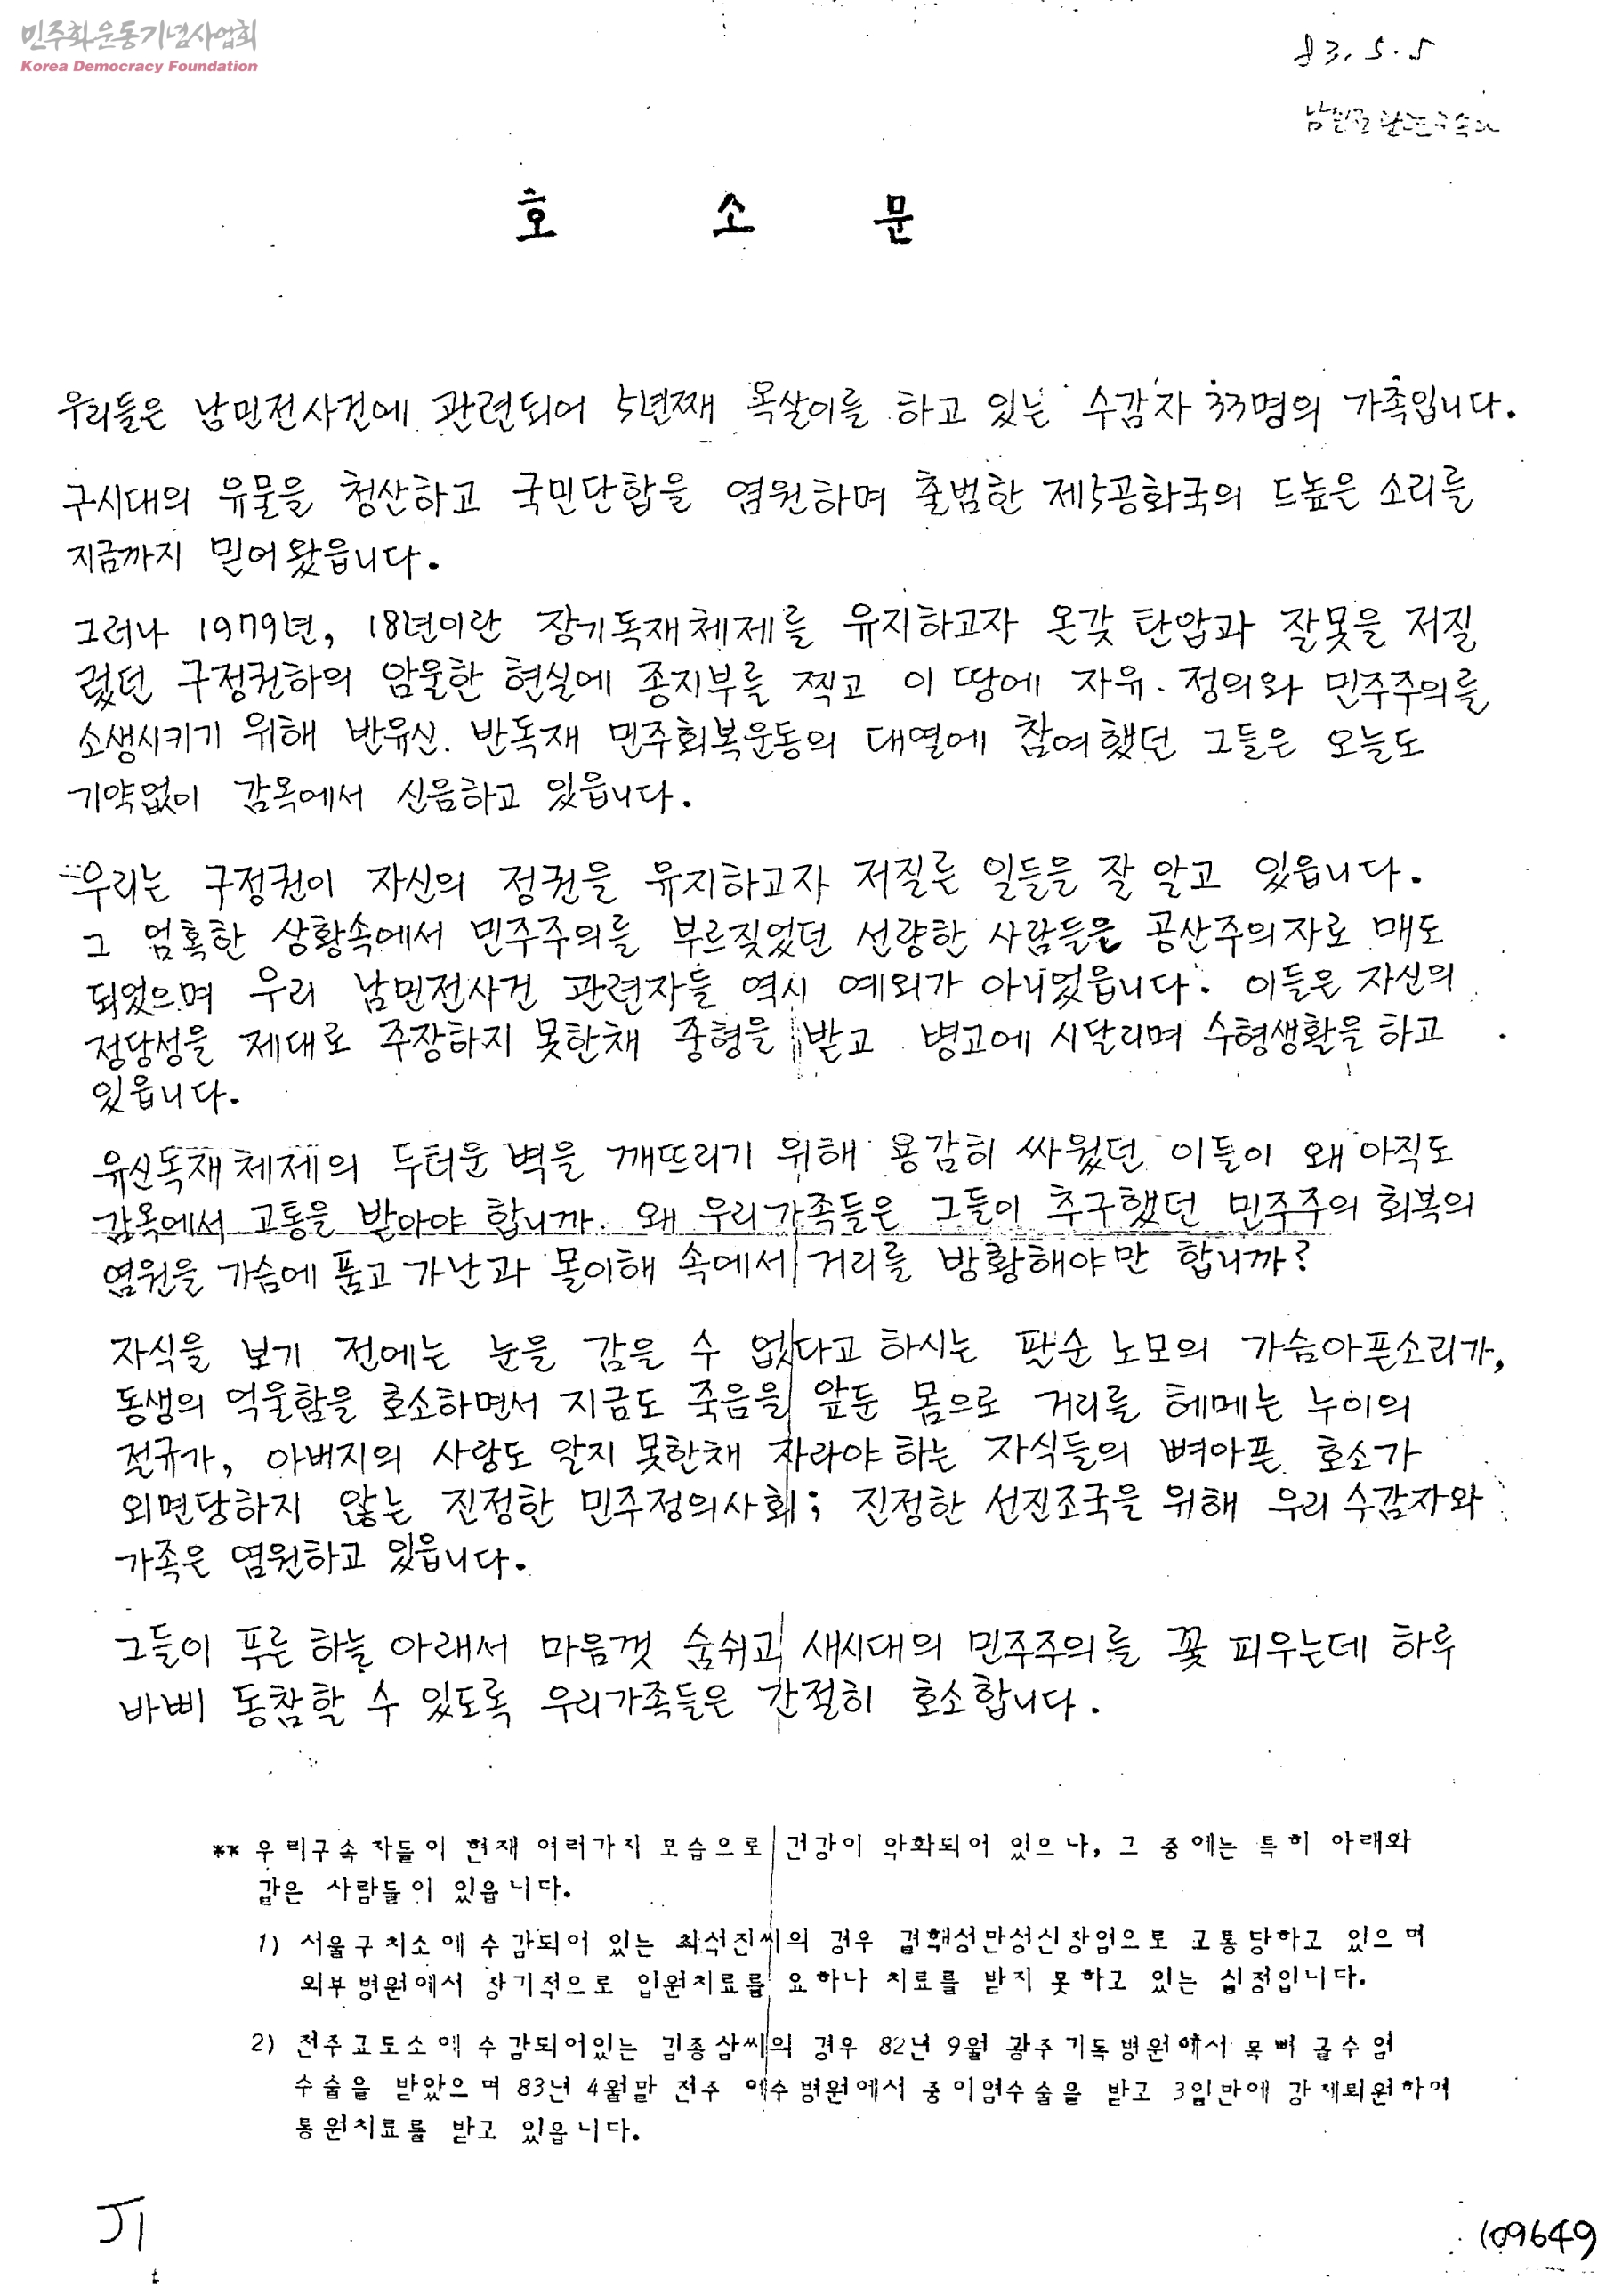 민주화운동기념사업회
Korea Democracy Foundation
83. 5. 5
호 소 문
우리들은 남민전사건에 관련되어 5년째 옥살이를 하고 있는 수감자 33명의 가족입니다.
구시대의 유물을 청산하고 국민단합을 염원하며 출범한 제5공화국의 드높은 소리를
지금까지 믿어왔읍니다.
그러나 1979년, 18년이란 장기독재체제를 유지하고자 온갖 탄압과 잘못을 저질
렀던 구정권하의 암울한 현실에 종지부를 찍고 이 땅에 자유. 정의와 민주주의를
소생시키기 위해 반유신. 반독재 민주회복운동의 대열에 참여했던 그들은 오늘도
기약없이 감옥에서 신음하고 있읍니다.
우리는 구정권이 자신의 정권을 유지하고자 저질른 일들을 잘 알고 있읍니다.
그 엄혹한 상황속에서 민주주의를 부르짖었던 선량한 사람들은 공산주의자로 매도
되었으며 우리 남민전사건 관련자들 역시 예외가 아니었읍니다. 이들은 자신의
정당성을 제대로 주장하지 못한채 중형을 받고 병고에 시달리며 수형생활을 하고
있읍니다.
유신독재체제의 두터운 벽을 깨뜨리기 위해 용감히 싸웠던 이들이 왜 아직도
감옥에서 고통을 받아야 합니까. 왜 우리가족들은 그들이 추구했던 민주주의 회복의
염원을 가슴에 품고 가난과 몰이해 속에서 거리를 방황해야만 합니까?
자식을 보기 전에는 눈을 감을 수 없다고 하시는 팔순 노모의 가슴아픈소리가,
동생의 억울함을 호소하면서 지금도 죽음을 앞둔 몸으로 거리를 헤메는 누이의
절규가, 아버지의 사랑도 알지 못한채 자라야 하는 자식들의 뼈아픈 호소가
외면당하지 않는 진정한 민주정의사회; 진정한 선진조국을 위해 우리 수감자와
가족은 염원하고 있읍니다.
그들이 푸른 하늘 아래서 마음껏 숨쉬고 새시대의 민주주의를 꽃 피우는데 하루
바삐 동참할 수 있도록 우리가족들은 간절히 호소합니다.
** 우리구속자들이 현재 여러가지 모습으로 건강이 악화되어 있으나, 그 중에는 특히 아래와
같은 사람들이 있읍니다.
1) 서울구치소에 수감되어 있는 최석진씨의 경우 결핵성만성신장염으로 고통당하고 있으며
외부병원에서 장기적으로 입원치료를 요하나 치료를 받지 못하고 있는 실정입니다.
2) 전주교도소에 수감되어있는 김종삼씨의 경우 82년 9월 광주기독병원에서 목뼈 골수염
수술을 받았으며 83년 4월말 전주 예수병원에서 중이염수술을 받고 3일만에 강제퇴원하여
통원치료를 받고 있읍니다.
J1
109649